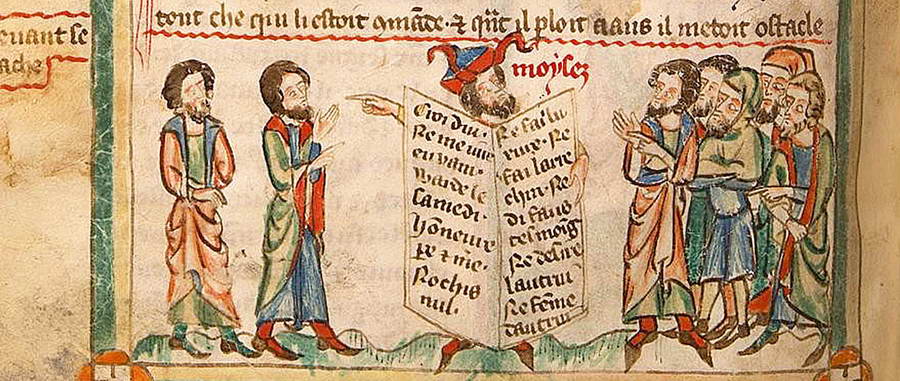 tout che qu'il i estoit amade · ⁊ qn̄t il ploit aaus il metoit ostacle
euant se
ache
moyses
Croi diu ·
Ne me iure
en vain ·
Warde le
samedi ·
Honeure
pe ⁊ me ·
N ochis
nul ·
Ne fai lu
xure · Ne
fai larre
chin · Ne
di faus
tesmoig
Ne desire
lautrui
Ne feme
dautrui